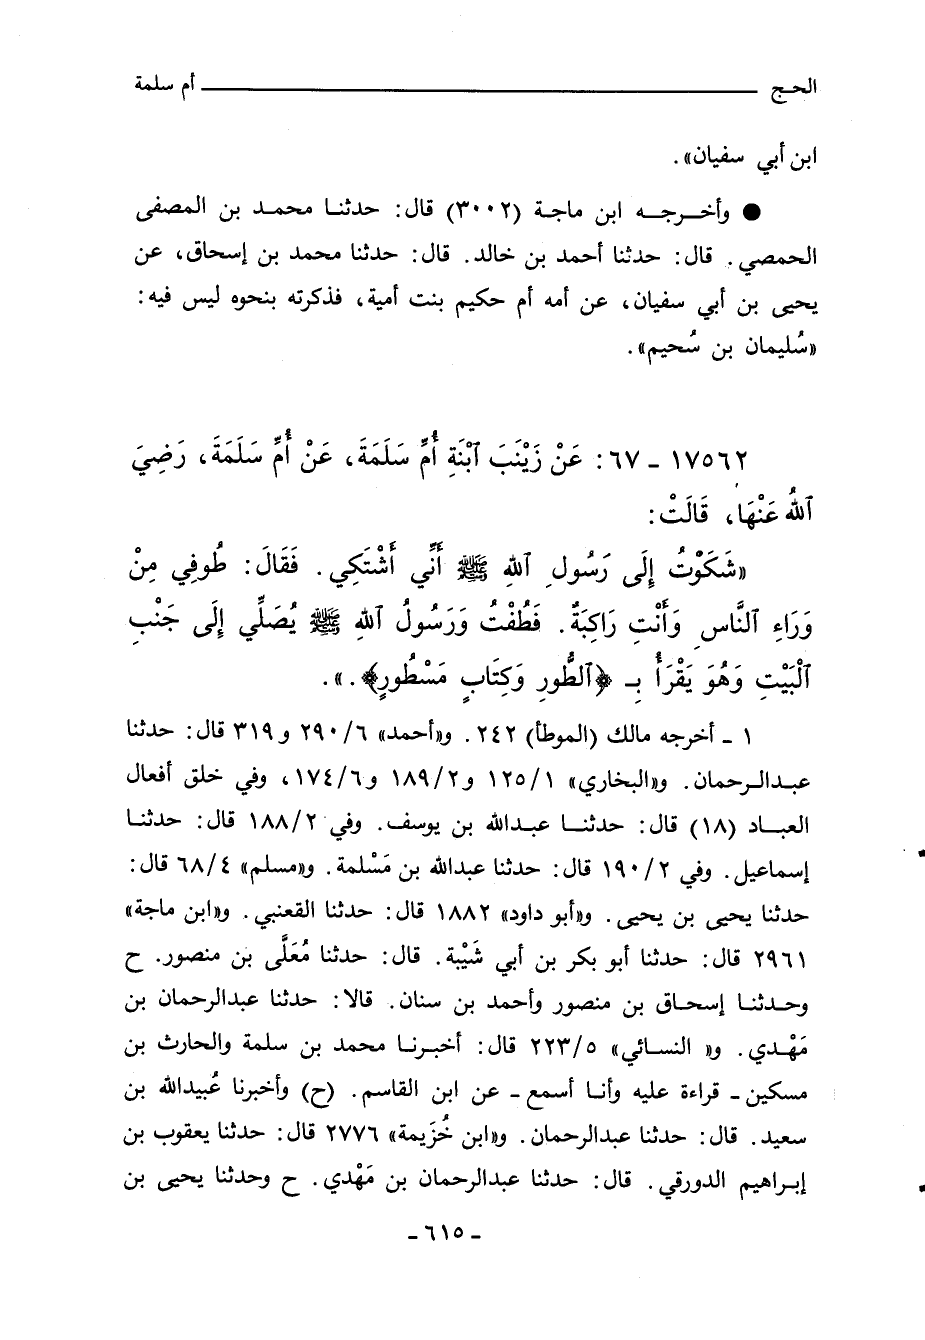 الحـج ــــــــــ أم سلمة
ابن أبي سفيان» .
● وأخـرجـه ابن ماجـة (٣٠٠٢) قال: حدثنـا محمـد بن المصفى
الحمصي . قال: حدثنا أحمد بن خالد. قال: حدثنا محمد بن إسحاق، عن
يحيى بن أبي سفيان، عن أمه أم حكيم بنت أمية، فذكرته بنحوه ليس فيه:
«سُليمان بن سُحيم» .
١٧٥٦٢ ـ ٦٧: عَنْ زَيْنَبَ ٱبْنَةِ أُمِّ سَلَمَةَ، عَنْ أُمِّ سَلَمَةَ، رَضِيَ
ٱللهُ عَنْهَا، قَالَتْ:
«شَكَوْتُ إِلَى رَسُولِ ٱللهِ ﷺ أَنِّي أَشْتَكِي. فَقَالَ: طُوفِي مِنْ
وَرَاءِ ٱلنَّاسِ وَأَنْتِ رَاكِبَةٌ. فَطُفْتُ وَرَسُولُ ٱللهِ ﷺ يُصَلِّي إِلَى جَنْبِ
ٱلْبَيْتِ وَهُوَ يَقْرَأُ بِـ ﴿ٱلطُّورِ وَكِتَابٍ مَسْطُورٍ﴾.».
١ ـ أخرجه مالك (الموطأ) ٢٤٢. و«أحمد» ٦/ ٢٩٠ و٣١٩ قال: حدثنا
عبـدالـرحمان. و«البخاري» ١/ ١٢٥ و٢/ ١٨٩ و٦/ ١٧٤، وفي خلق أفعال
العبـاد (١٨) قال: حدثنـا عبـدالله بن يوسف. وفي ٢/ ١٨٨ قال: حدثنـا
إسماعيل. وفي ٢/ ١٩٠ قال: حدثنا عبدالله بن مَسْلمة. و«مسلم» ٤/ ٦٨ قال:
حدثنا يحيى بن يحيى. و«أبو داود» ١٨٨٢ قال: حدثنا القعنبي. و«ابن ماجة»
٢٩٦١ قال: حدثنا أبو بكر بن أبي شَيْبة. قال: حدثنا مُعَلَّى بن منصور. ح
وحـدثنـا إسحاق بن منصور وأحمد بن سنان. قالا: حدثنا عبدالرحمان بن
مَهْـدي. و« النسـائي» ٥/ ٢٢٣ قال: أخبـرنـا محمد بن سلمة والحارث بن
مسكين ـ قراءة عليه وأنـا أسمع ـ عن ابن القاسم. (ح) وأخبرنا عُبيدالله بن
سعيد. قال: حدثنا عبدالرحمان. و«ابن خُزَيمة» ٢٧٧٦ قال: حدثنا يعقوب بن
إبـراهيم الدورقي. قال: حدثنا عبدالرحمان بن مَهْدي. ح وحدثنا يحيى بن
ـ ٦١٥ ـ